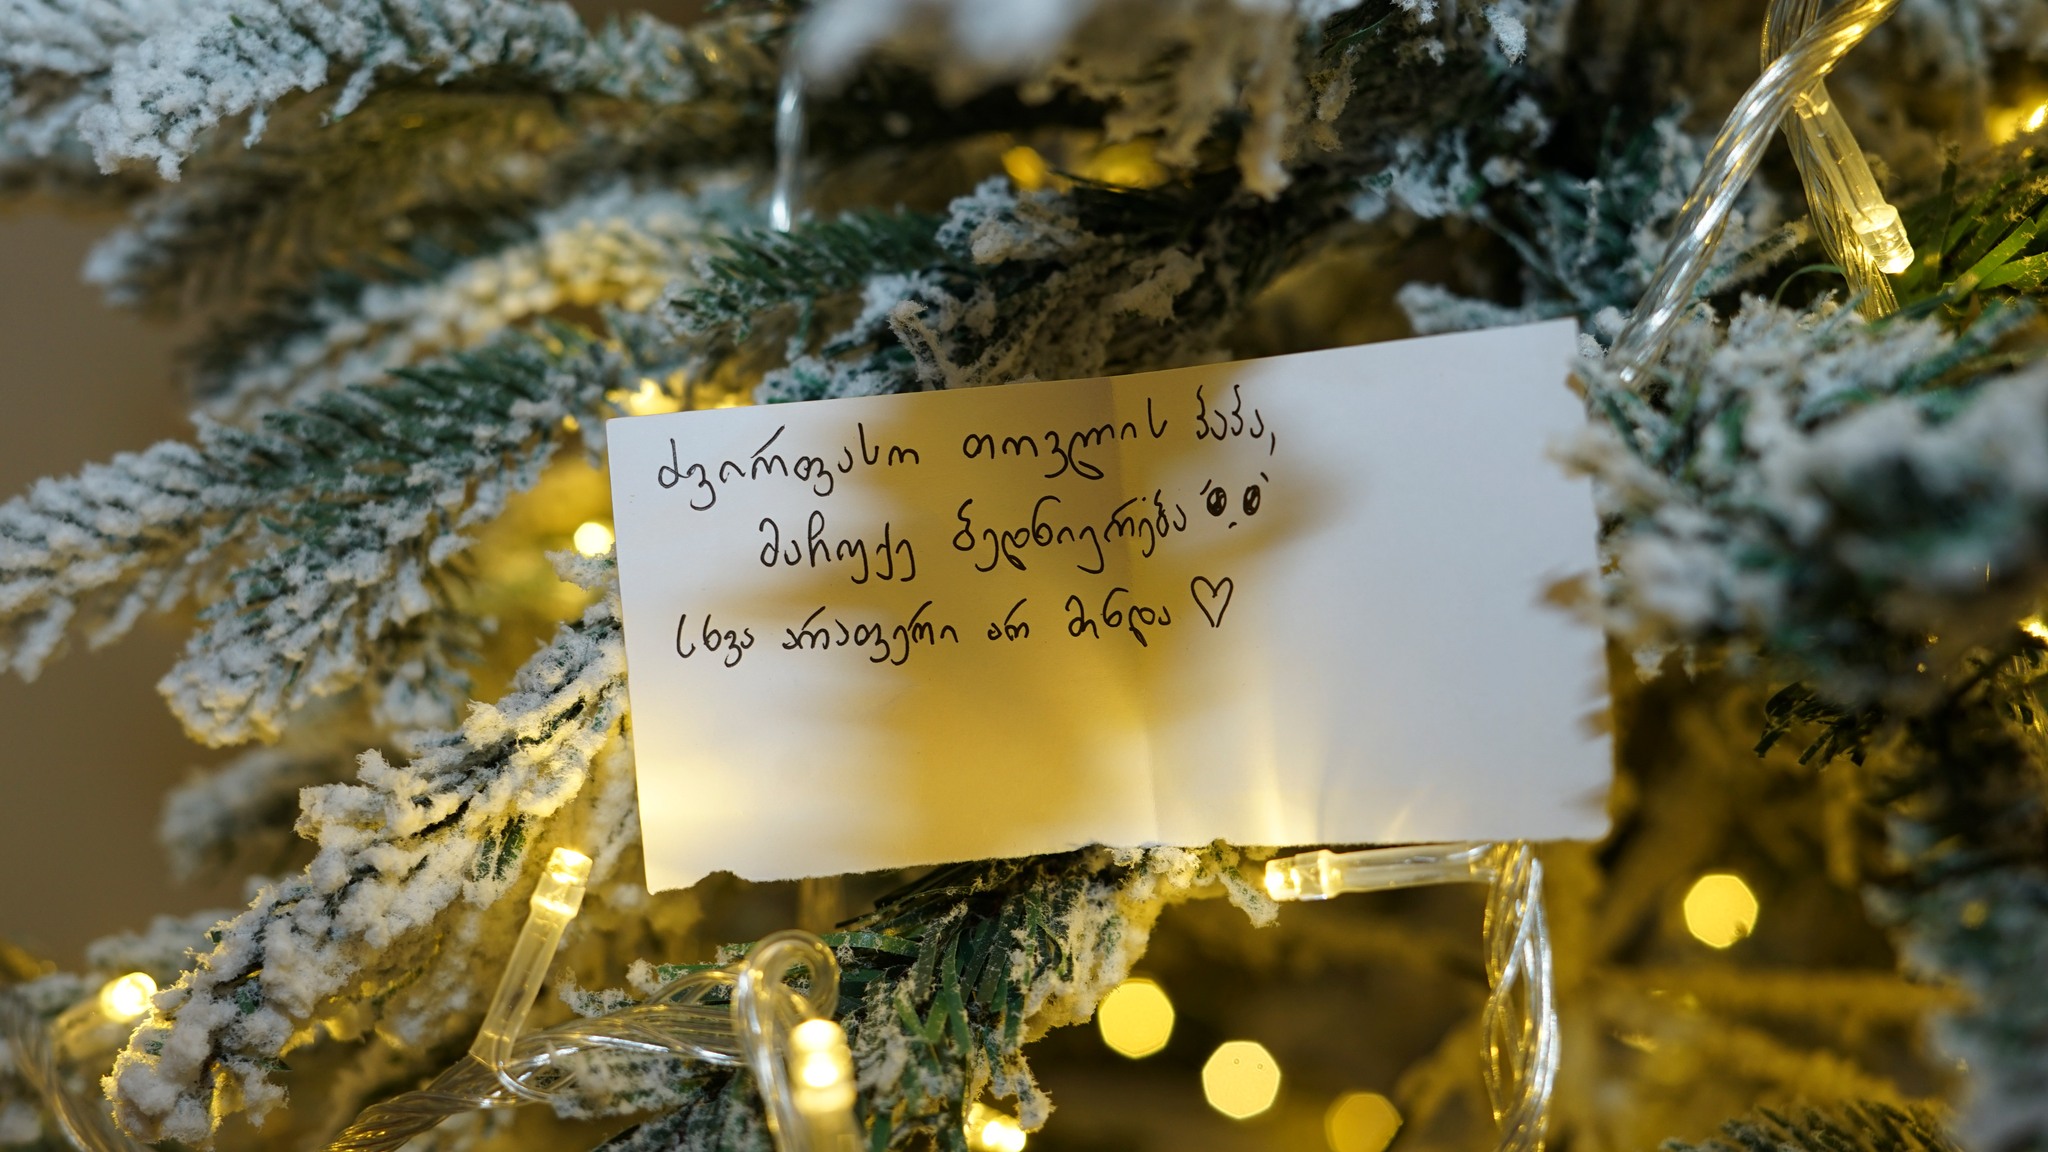 ძვირფასო თოვლის პაპა,
მაჩუქე ბედნიერება
სხვა არაფერი არ მინდა ♡